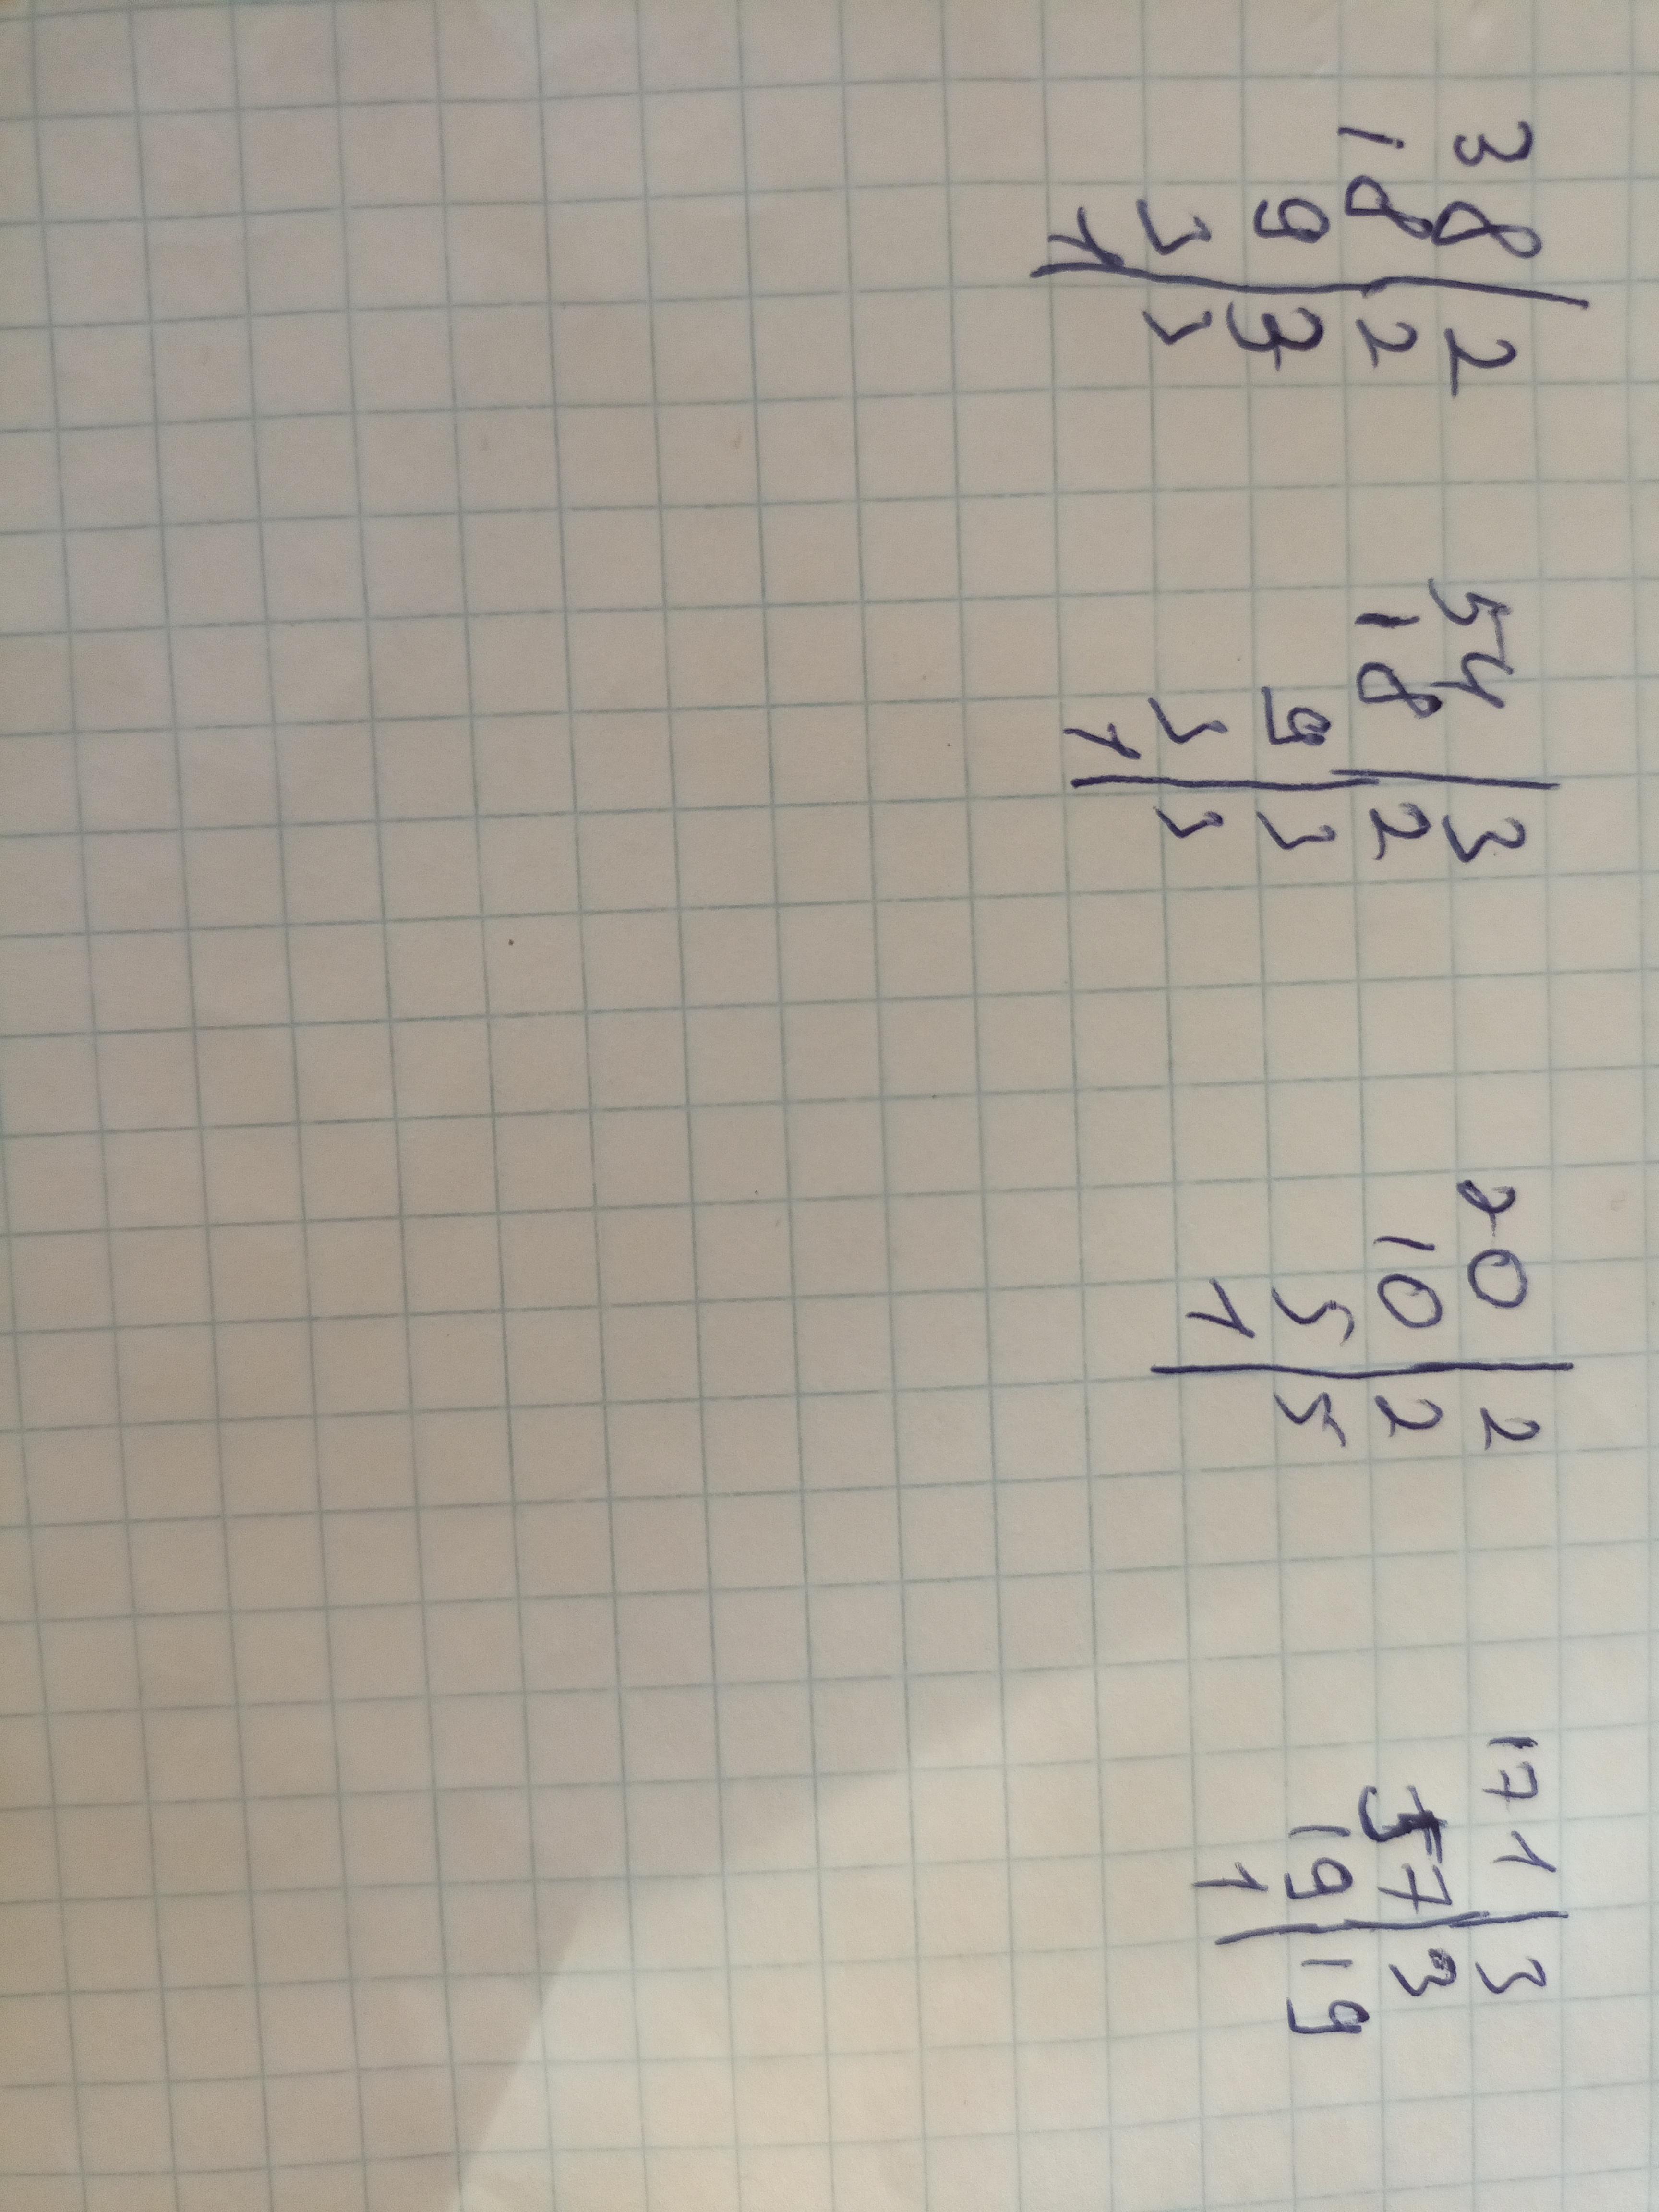 38 | 2 54 | 3 20 | 2 171 | 3
18 | 2 18 | 2 10 | 2 57 | 3
9 | 3 9 | 3 5 | 5 19 | 19
3 | 3 3 | 3 1 1
1 1